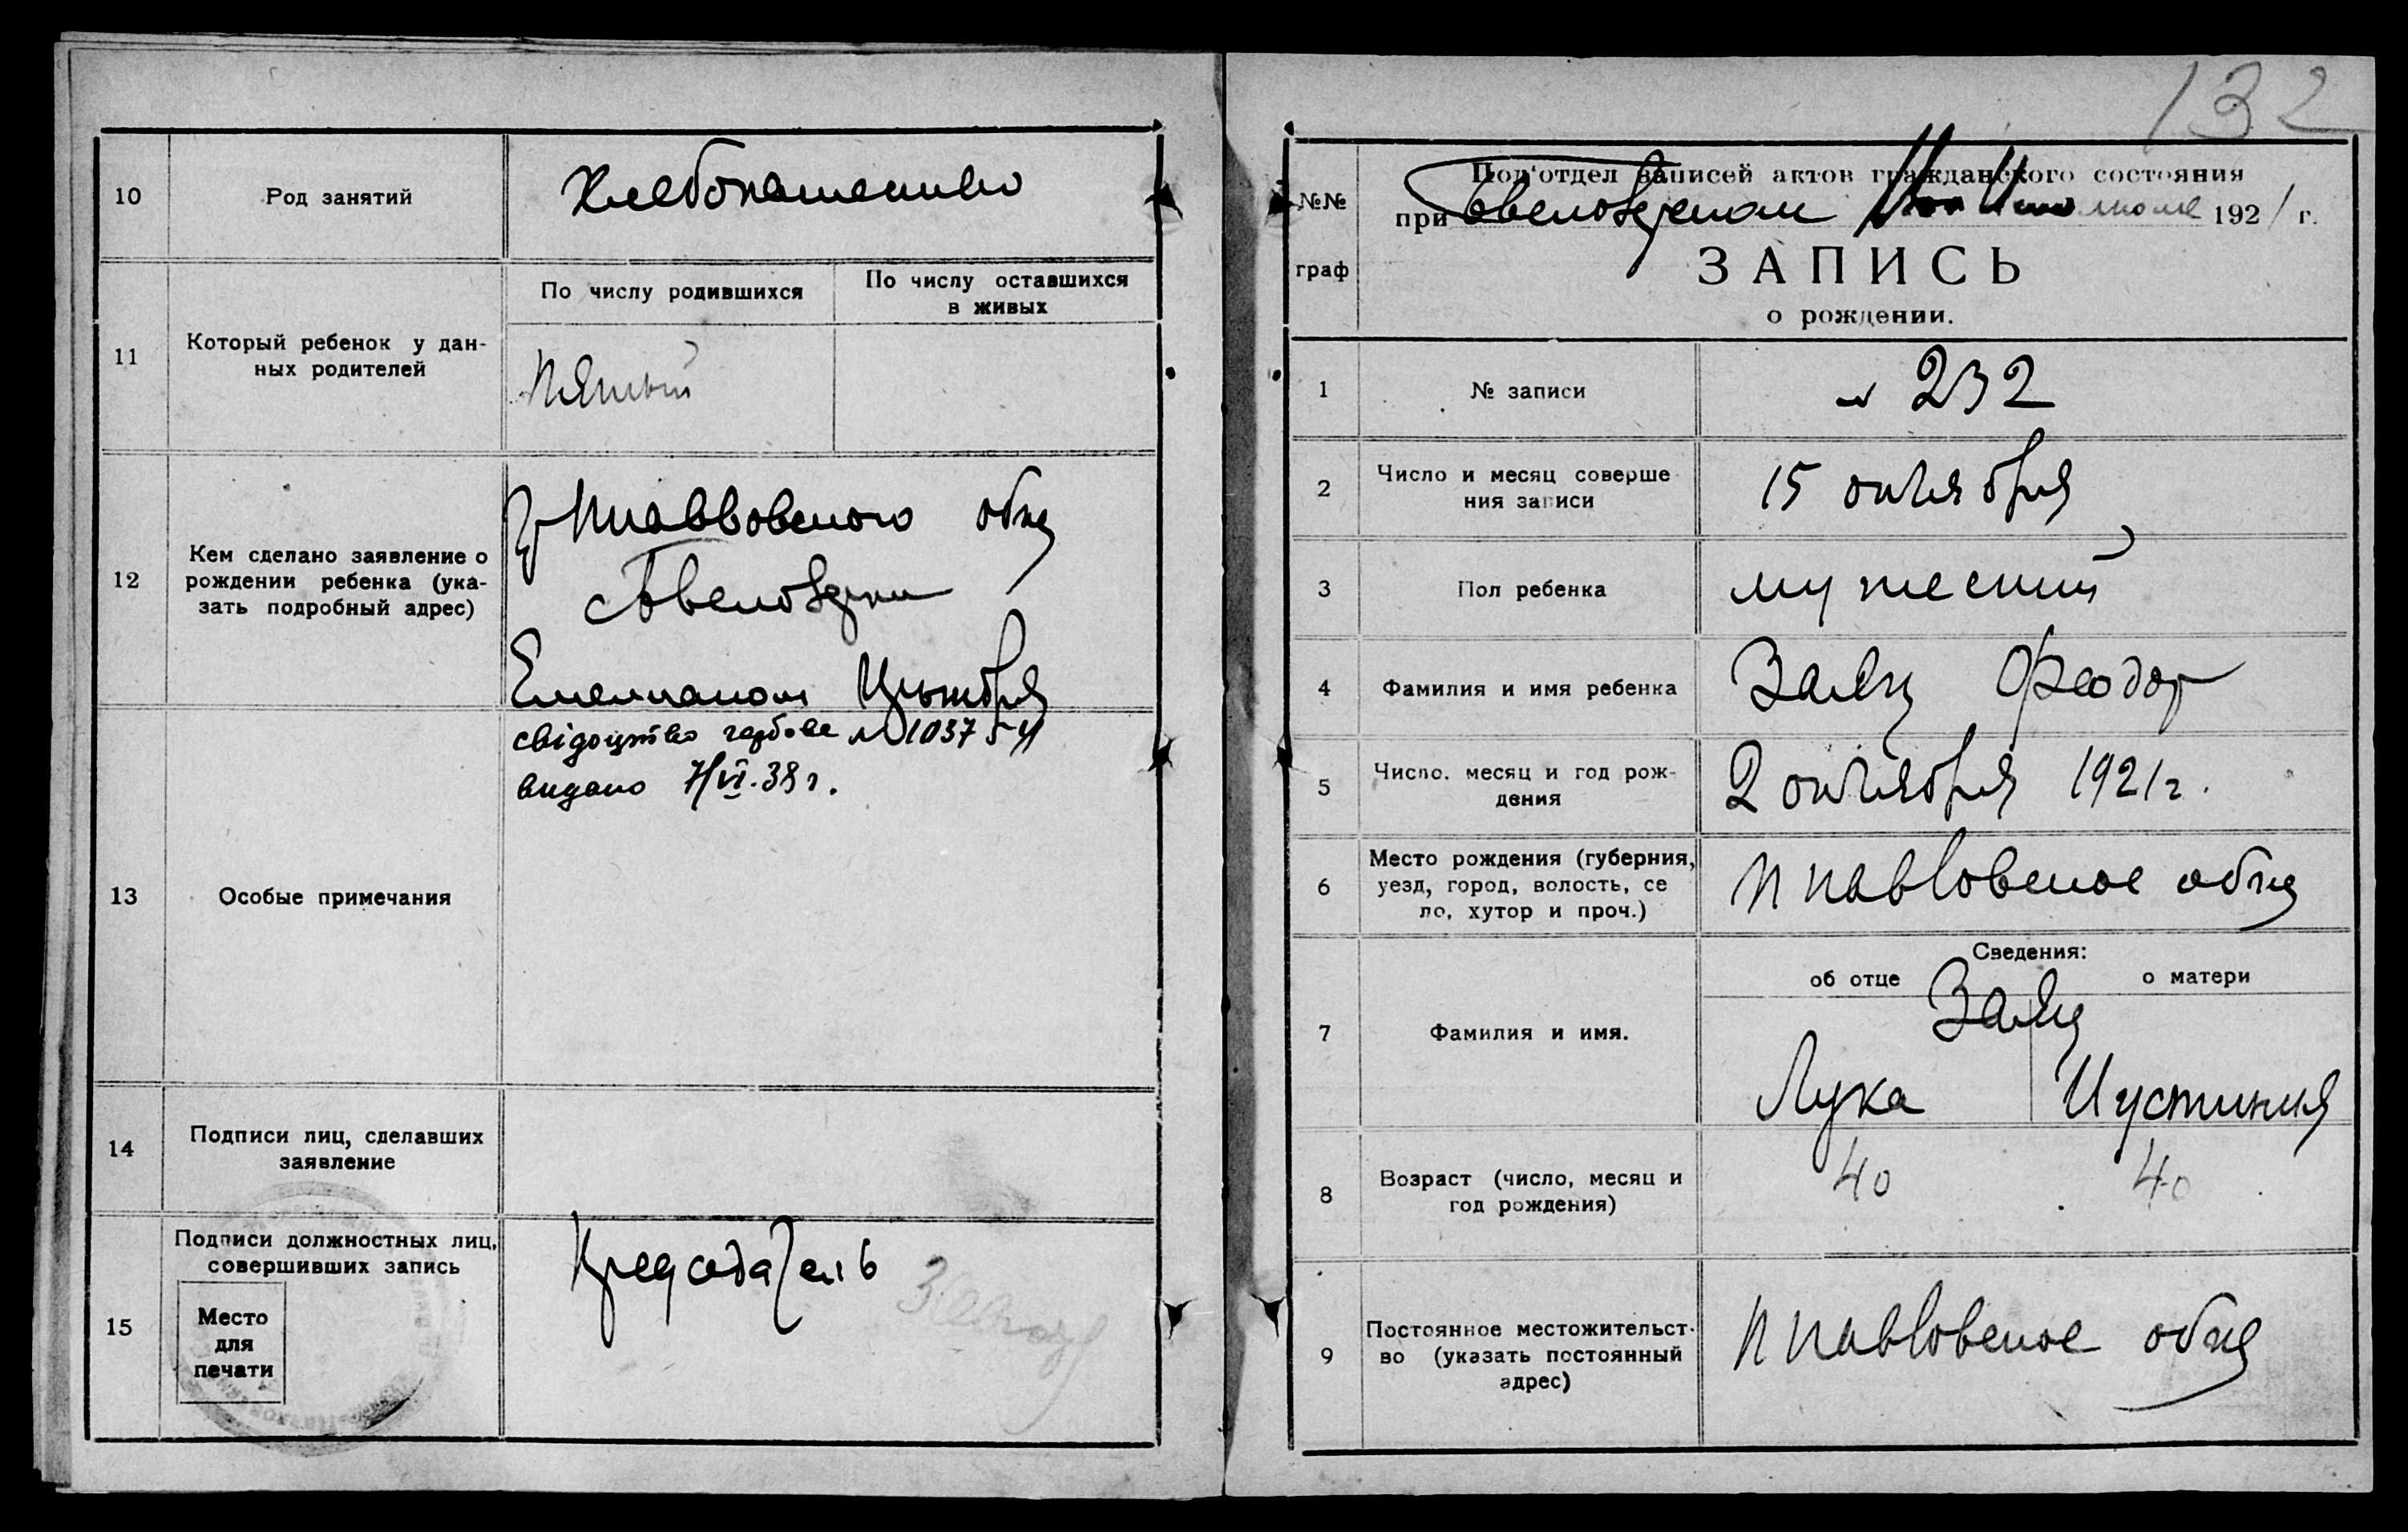 10
Род занятий
Хлебопашество
11
Который ребенок у дан-
ных родителей
По числу родившихся
По числу оставшихся
в живых
пятый
12
Кем сделано заявление о
рождении ребенка (ука-
зать подробный адрес)
обще
13
Особые примечания
свідоцтво гербове №
видано 7/VI.38 г.
14
Подписи лиц, сделавших
заявление
15
Подписи должностных лиц,
совершивших запись
Место
для
печати
132
№№
граф
Под'отдел записей актов гражданского состояния
при 1921 г.
ЗАПИСЬ
о рождении.
1
№ записи
№ 232
2
Число и месяц соверше
ния записи
15 октября
3
Пол ребенка
мужеский
4
Фамилия и имя ребенка
Заяц Феодор
5
Число. месяц и год рож-
дения
2 октября 1921 г.
6
Место рождения (губерния,
уезд, город, волость, се
ло, хутор и проч.)
П павловское обще
7
Фамилия и имя.
Сведения:
об отце
о матери
Заяц
Лука
Иустиния
8
Возраст (число, месяц и
год рождения)
40
40
9
Постоянное местожительст-
во (указать постоянный
адрес)
П павловское обще